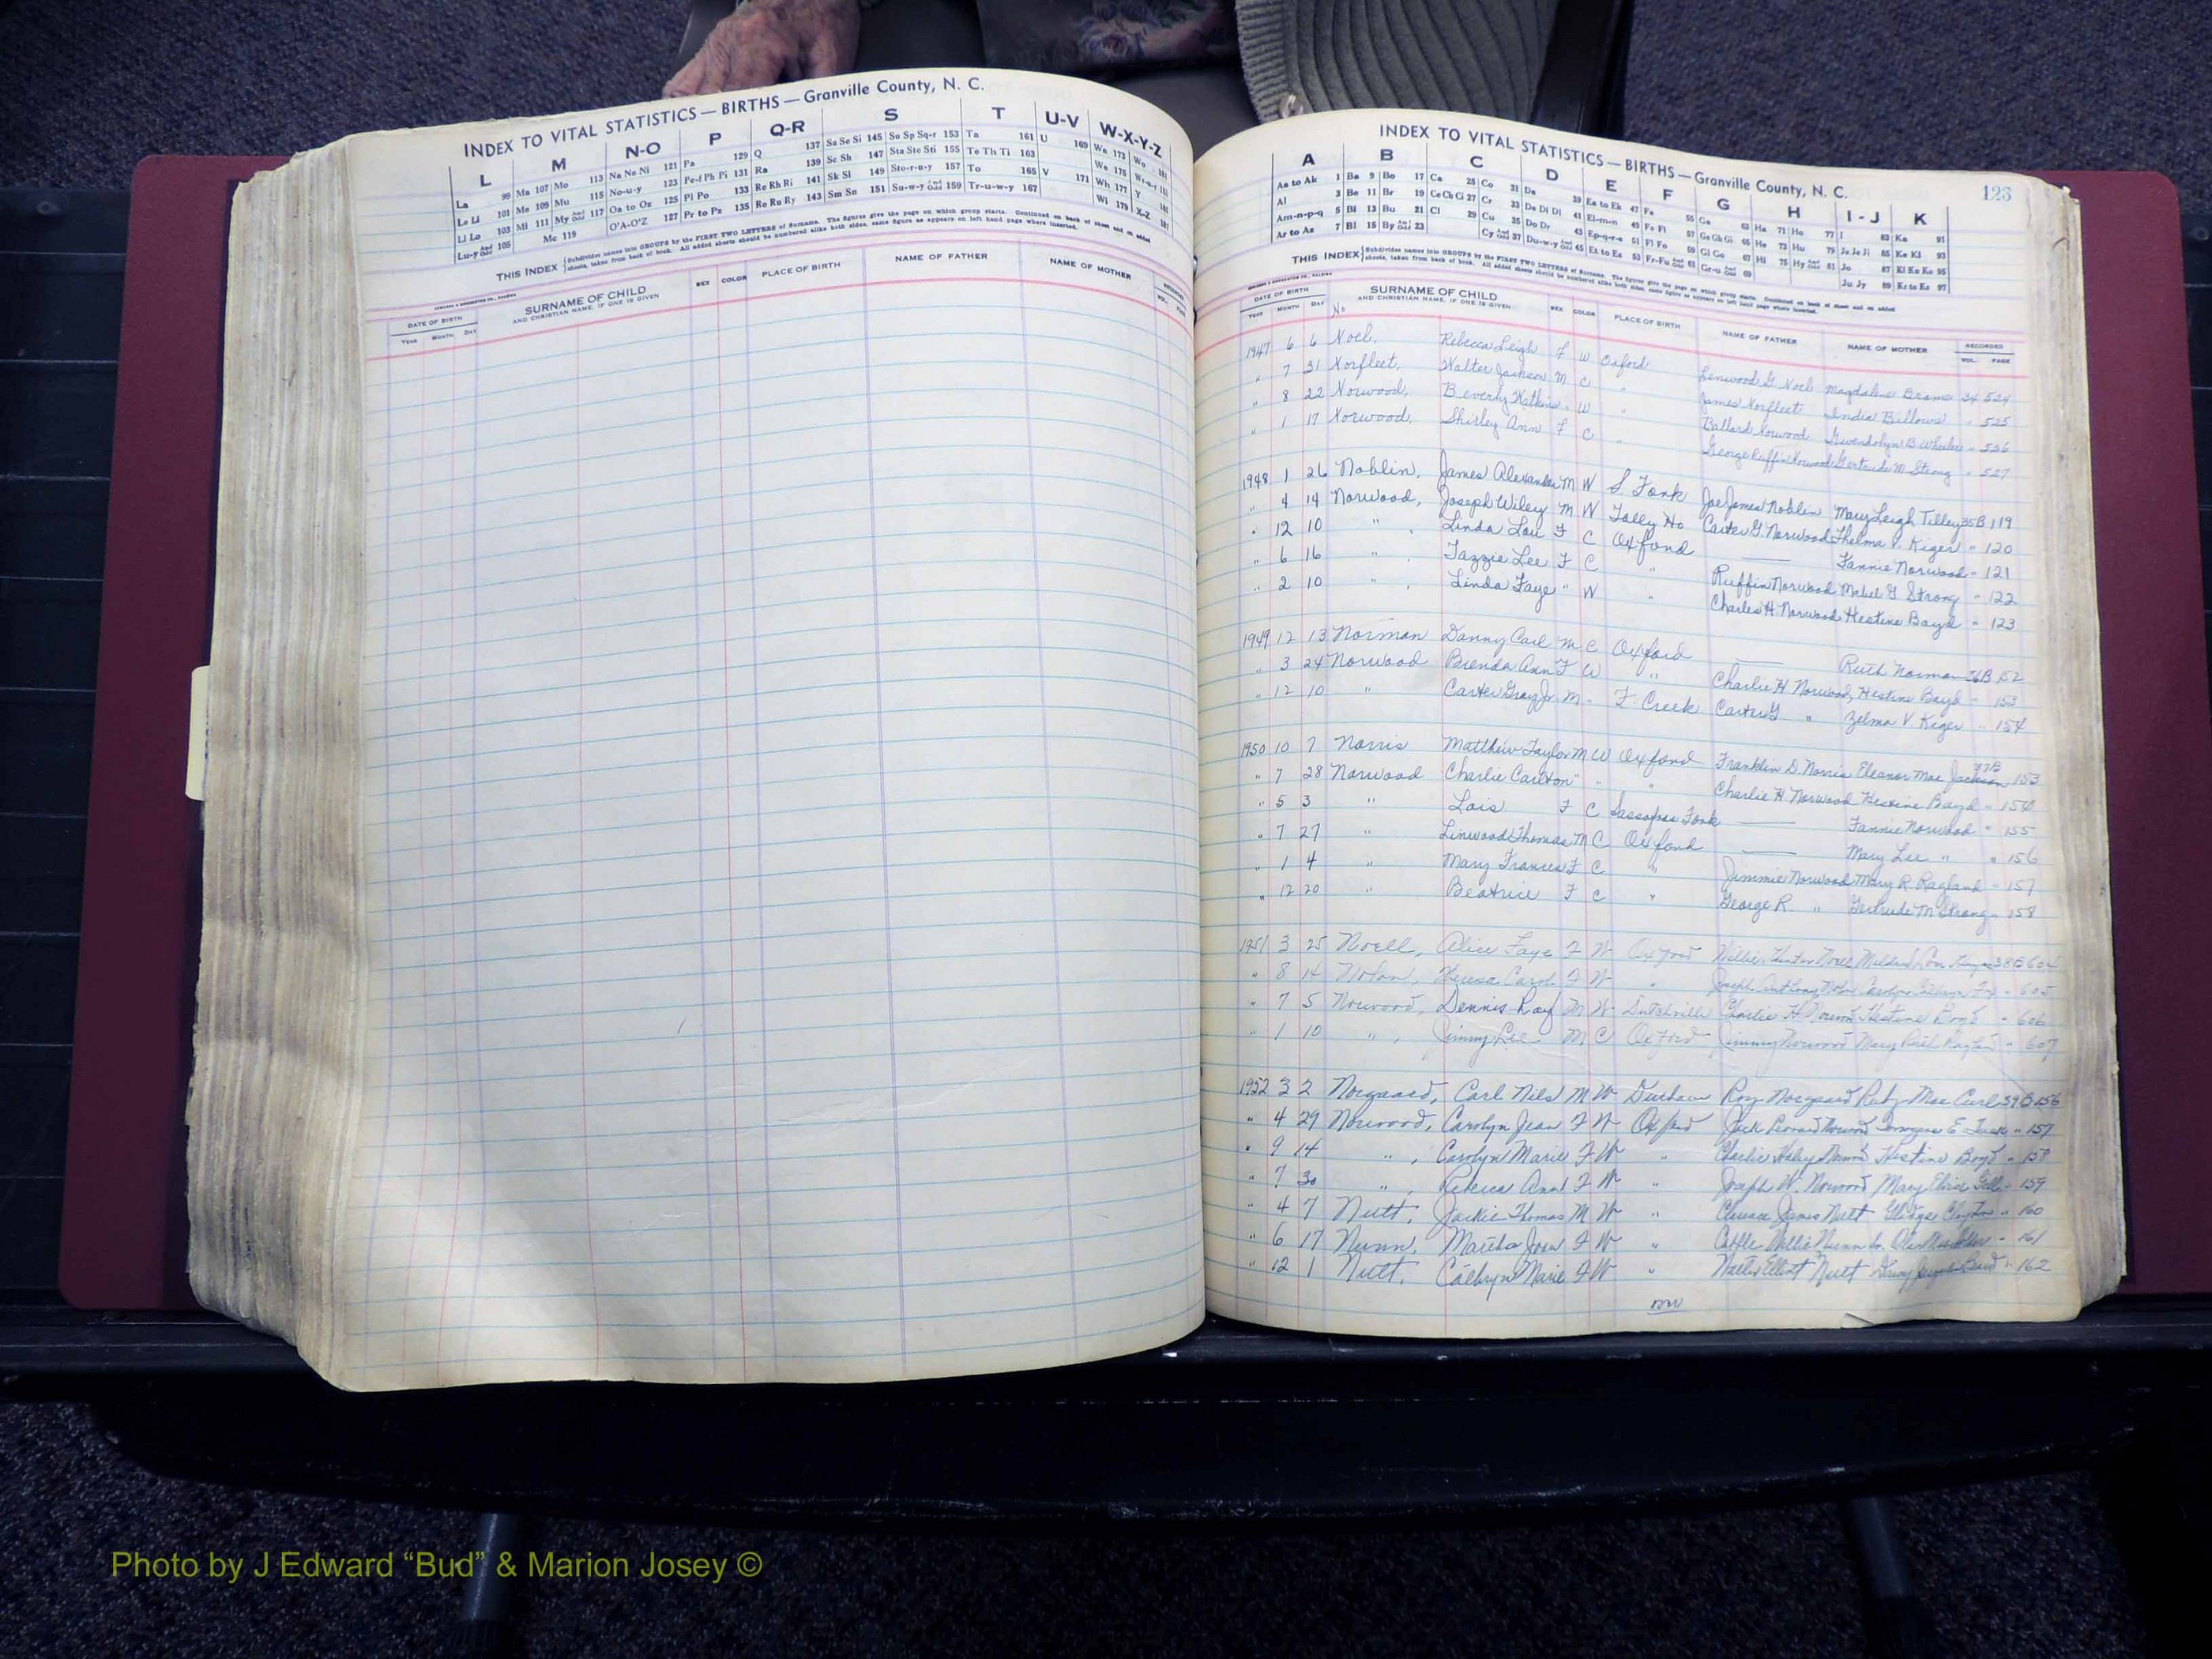 INDEX TO VITAL STATISTICS — BIRTHS — Granville County, N. C.
L M N-O P Q-R S T U-V W-X-Y-Z
La 99 Ma 107 Mo 113 Na Ne Ni 121 Pa 129 Q 137 Sa Se Si 145 So Sp Sq-r 153 Ta 161 U 169 Wa 173 Wo 181
Le Li 101 Me 109 Mu 115 No-u-y 123 Pe-f Ph Pi 131 Ra 139 Sc Sh 147 Sta Ste Sti 155 Te Th Ti 163 V 171 We 175
Ll Lo 103 Mi 111 My And Odd 117 Oa to Oz 125 Pl Po 133 Re Rh Ri 141 Sk Sl 149 Sto-r-u-y 157 To 165 Wh 177 Y
Lu-y And Odd 105 Mc 119 O'A-O'Z 127 Pr to Pz 135 Ro Ru Ry 143 Sm Sn 151 Su-w-y And Odd 159 Tr-u-w-y 167 Wi 179 X-Z 187
THIS INDEX Subdivides names into GROUPS by the FIRST TWO LETTERS of Surname. The figures give the page on which group starts. Continued on back of sheet and on added
sheets, taken from back of book. All added sheets should be numbered alike both sides, same figure as appears on left hand page where inserted.
DATE OF BIRTH SURNAME OF CHILD SEX COLOR PLACE OF BIRTH NAME OF FATHER NAME OF MOTHER RECORDED
YEAR MONTH DAY AND CHRISTIAN NAME, IF ONE IS GIVEN VOL. PAGE
INDEX TO VITAL STATISTICS — BIRTHS — Granville County, N. C. 123
A B C D E F G H I-J K
Aa to Ak 1 Ba 9 Bo 17 Ca 25 Co 31 Da 39 Ea to Ek 47 Fa 55 Ga 63 Ha 71 Ho 77 I 83 Ka 91
Al 3 Be 11 Br 19 Ce Ch Ci 27 Cr 33 De Di Dl 41 El-m-n 49 Fe Fi 57 Ge Gh Gi 65 He 73 Hu 79 Ja Je Ji 85 Ke Kl 93
Am-n-p-q 5 Bi 13 Bu 21 Cl 29 Cu 35 Do Dr 43 Ep-q-r-s 51 Fl Fo 59 Gl Go 67 Hi 75 Hy And Odd 81 Jo 87 Kl Kn Ko 95
Ar to Az 7 Bl 15 By And Odd 23 Cy And Odd 37 Du-w-y And Odd 45 Et to Ez 53 Fr-Fu And Odd 61 Gr-u And Odd 69 Ju Jy 89 Kr to Kz 97
THIS INDEX Subdivides names into GROUPS by the FIRST TWO LETTERS of Surname. The figures give the page on which group starts. Continued on back of sheet and on added
sheets, taken from back of book. All added sheets should be numbered alike both sides, same figure as appears on left hand page where inserted.
DATE OF BIRTH SURNAME OF CHILD SEX COLOR PLACE OF BIRTH NAME OF FATHER NAME OF MOTHER RECORDED
YEAR MONTH DAY AND CHRISTIAN NAME, IF ONE IS GIVEN VOL. PAGE
No
1947 6 6 Noel, Rebecca Leigh F W Oxford Linwood G. Noel Magdalene 34 524
" 7 31 Norfleet, Walter Jackson M C " James Norfleet India Billows " 525
" 8 22 Norwood, Beverly Watkins " W " Ballard Norwood Gwendolyn B. Wheeler " 526
" 1 17 Norwood, Shirley Ann F C " George Ruffin Norwood Gertrude M Strong " 527
1948 1 26 Noblin, James Alexander M W S Fork Joe James Noblin Mary Leigh Tilley 35B 119
" 4 14 Norwood, Joseph Wiley M W Tally Ho Carter G. Norwood Thelma V. Kiger " 120
" 12 10 " , Linda Lou F C Oxford —— Fannie Norwood " 121
" 6 16 " Tazzie Lee F C " Ruffin Norwood Mabel G Strong " 122
" 2 10 " , Linda Faye " W " Charles H. Norwood Hestine Boyd " 123
1949 12 13 Norman Danny Carl M C Oxford —— Ruth Norman 36B 152
" 3 24 Norwood Brenda Ann F W " Charlie H Norwood, Hestine Boyd " 153
" 12 10 " Carter Gray Jr M " F Creek Carter G " Zelma V Kiger " 154
1950 10 7 Norris Matthew Taylor M W Oxford Franklin D. Norris Eleanor Mae Jackson 37B 153
" 7 28 Norwood Charlie Carlton " " " Charlie H Norwood Hestine Boyd " 154
" 5 3 " Lois F C Sassafras Fork —— Fannie Norwood " 155
" 7 27 " Linwood Thomas M C Oxford —— Mary Lee " " 156
" 1 4 " Mary Frances F C " Jimmie Norwood Mary R Ragland " 157
" 12 20 " Beatrice F C " George R. " Gertrude M Strong " 158
1951 3 25 Noell, Alice Faye F W Oxford Willie Hunter Noell Mildred Lou 38B 604
" 8 14 Nolan, Theresa Carol F W " Joseph Anthony Nolan Carolyn " 605
" 7 5 Norwood, Dennis Ray M W Dutchville Charlie H Norwood Hestine Boyd " 606
" 1 10 " , Jimmy Lee M C Oxford Jimmy Norwood Mary Ruth Ragland " 607
1952 3 2 Norgaard, Carl Nils M W Durham Roy Norgaard Ruby Mae Curl 39B 156
" 4 29 Norwood, Carolyn Jean F W Oxford Jack Leonard Norwood E. " 157
" 9 14 " , Carolyn Marie F W " Charlie Haley Norwood Hestine Boyd " 158
" 7 30 " , Rebecca Ann F W " Joseph W. Norwood Mary Elvis " 159
" 4 7 Nutt, Jackie Thomas M W " Clarence James Nutt Gladys Clayton " 160
" 6 17 Nunn, Martha Joan F W " Willie Nunn Jr. " 161
" 12 1 Nutt, Cathryn Marie F W " Walter Elliott Nutt " 162
Photo by J Edward “Bud” & Marion Josey ©